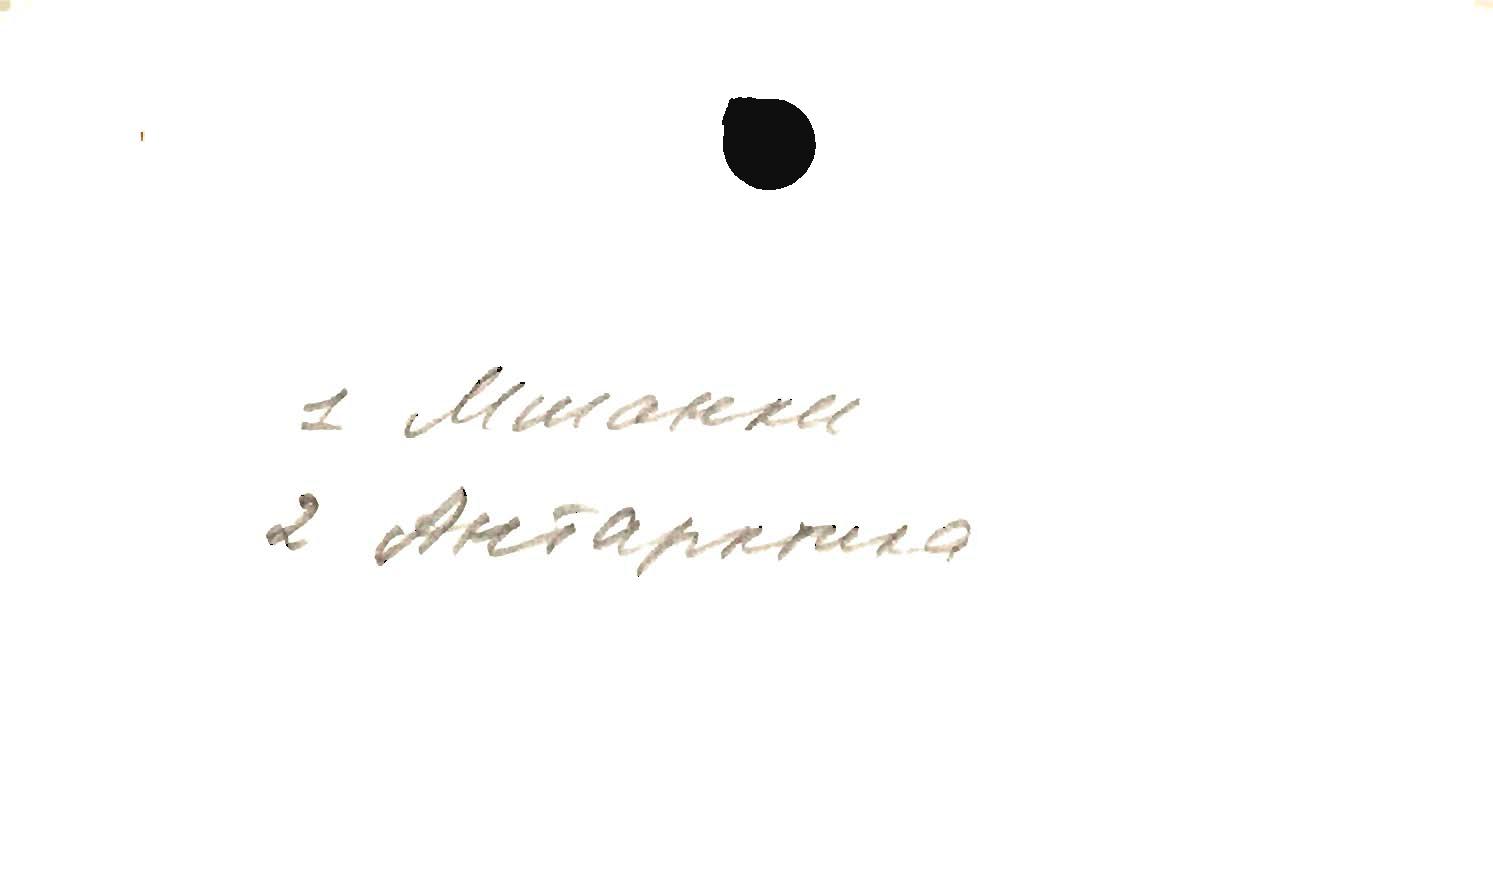 1 Мшанки
2 Антарктика